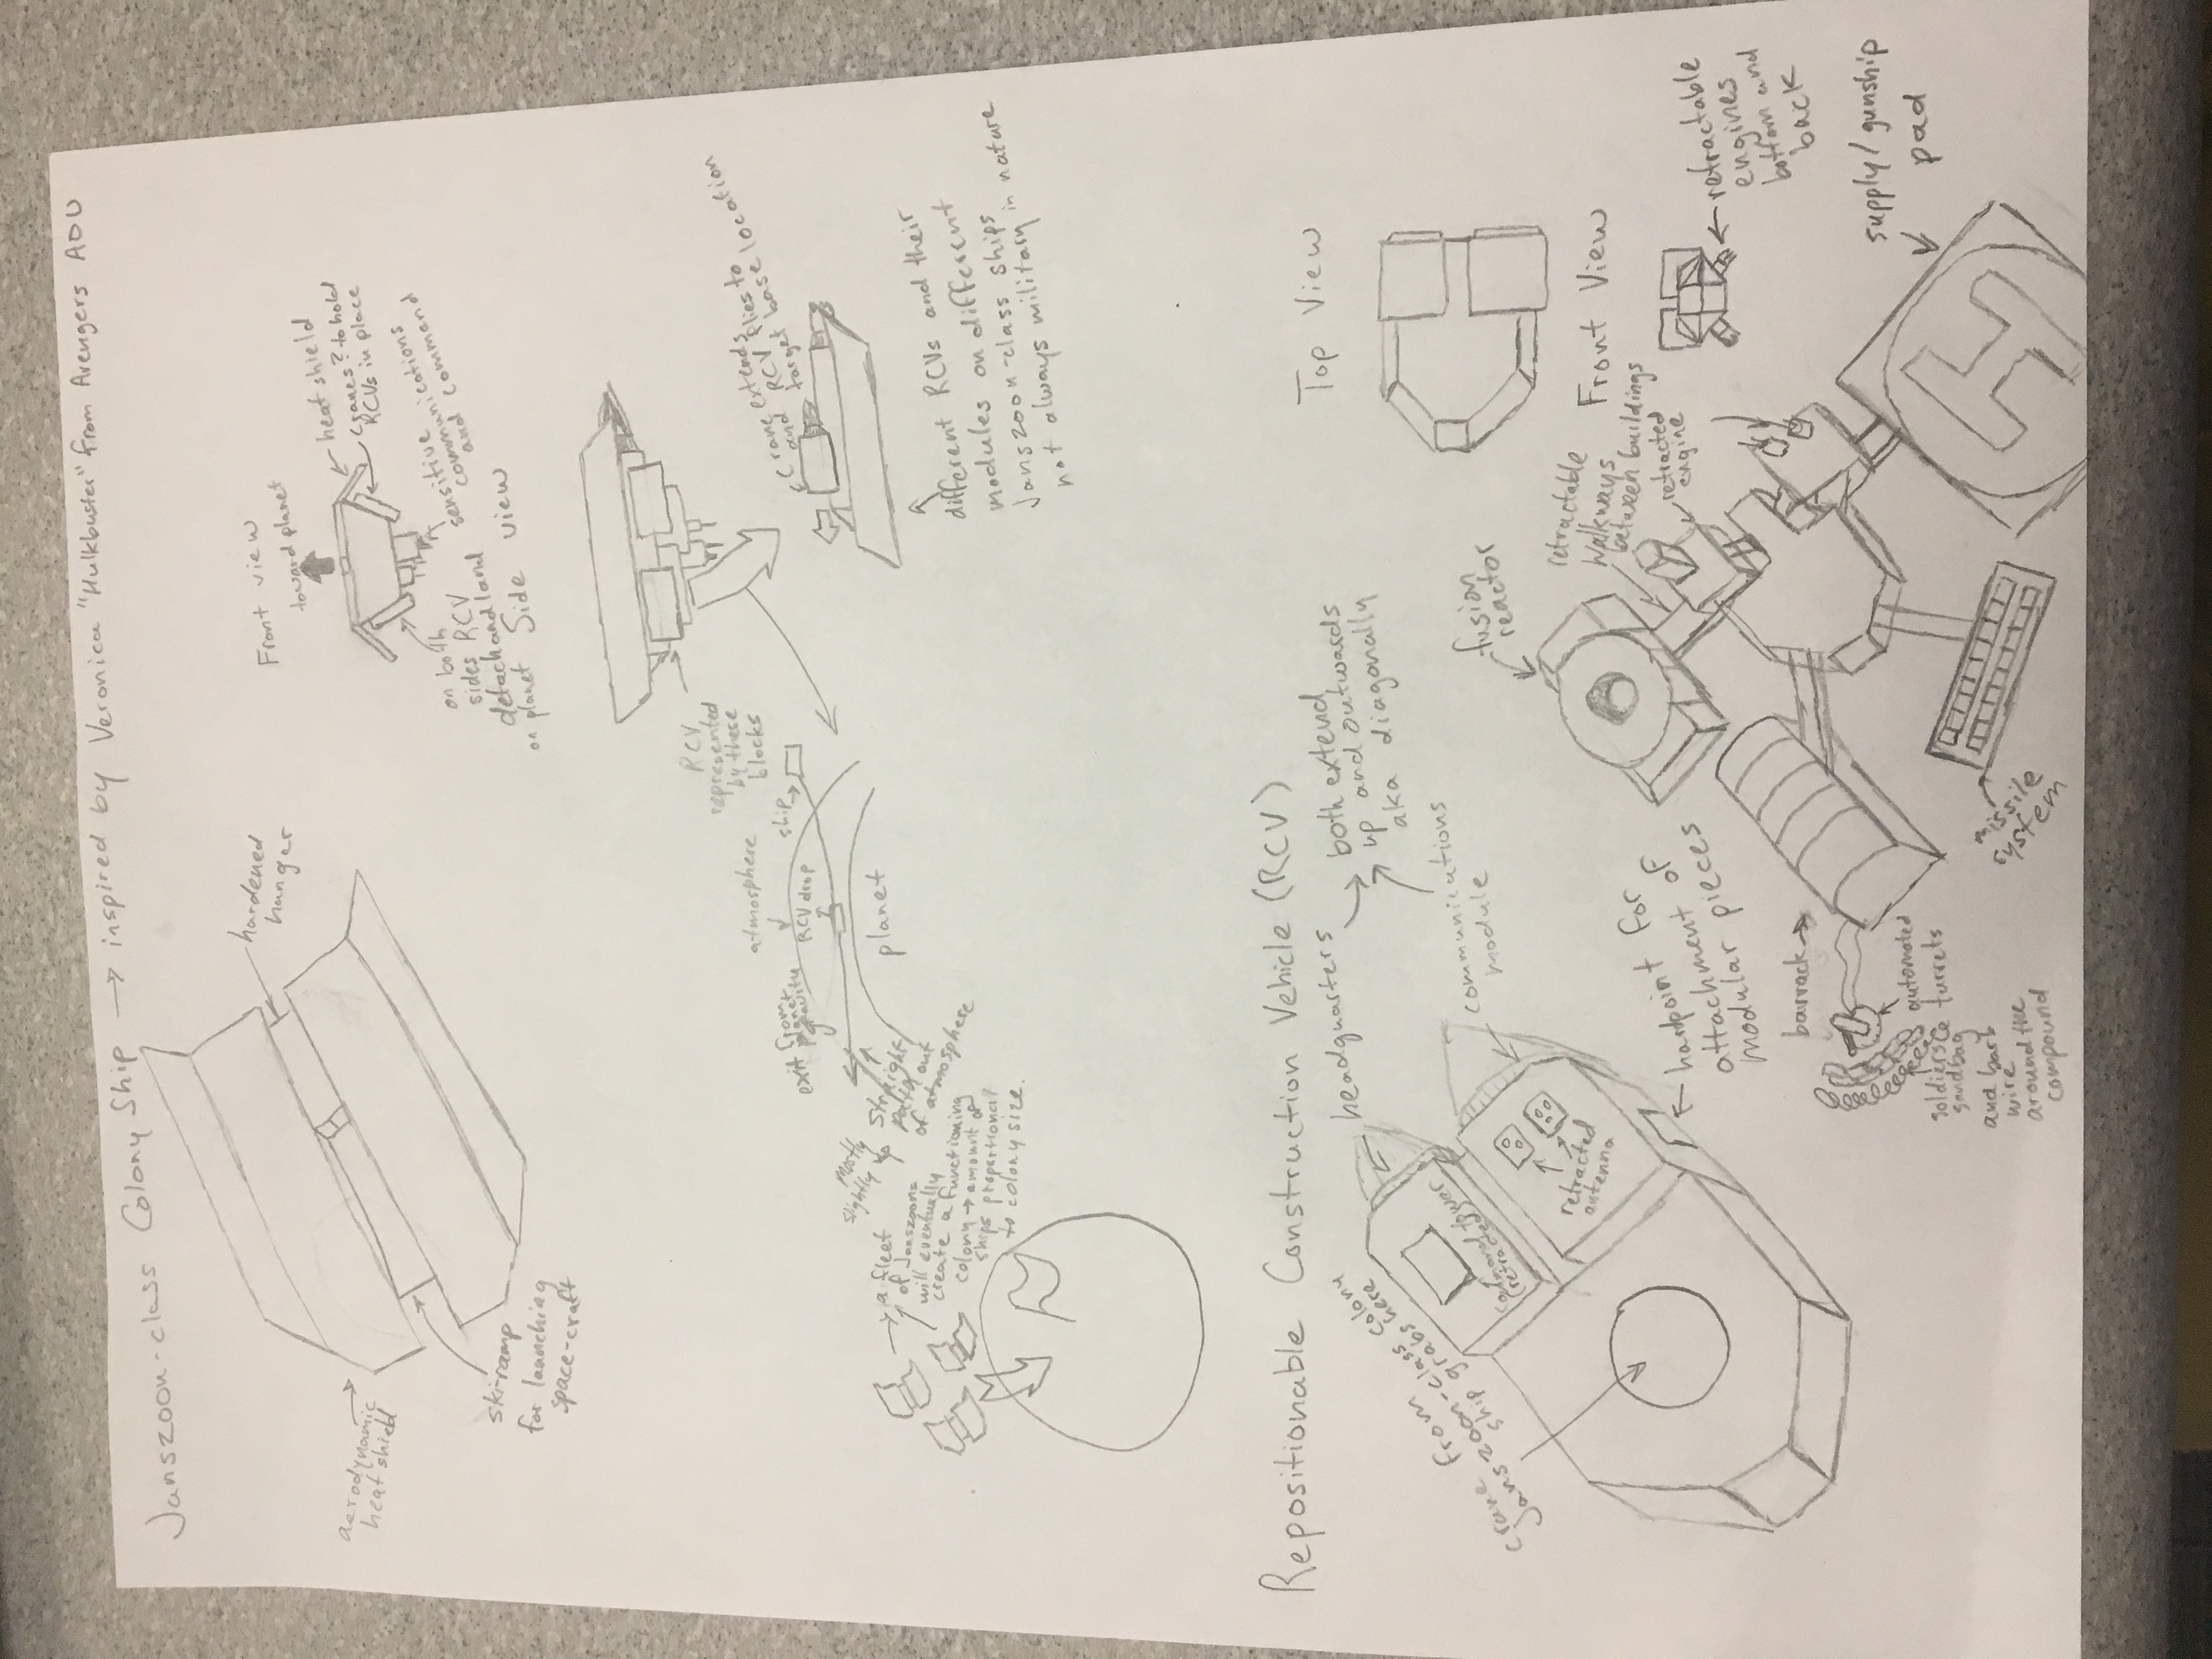 Janszoon-class Colony Ship → inspired by Veronica "Hulkbuster" from Avengers AOU
hardened
hanger
aerodynamic
heat shield
ski-ramp
for launching
space-craft
Front view
toward planet
heat shield
cranes? to hold
RCVs in place
on both
sides RCV
detach and land
on planet
sensitive
communications
and command
Side view
RCV
represented
by these
blocks
crane extends
and RCV flies to
target base location
different RCVs and their
modules on different
Janszoon-class ships
not always military in nature
atmosphere
ship
RCV drop
exit from
planet
gravity
planet
mostly
slightly up
straight
path out
of atmosphere
a fleet
of Janszoons
will eventually
create a functioning
colony → amount of
ships proportional
to colony size.
Repositionable Construction Vehicle (RCV)
headquarters
both extend
up and outwards
aka diagonally
crane from
Janszoon-class colony
ship grabs here
command tower
(retracted)
communications
module
retracted
antenna
hardpoint for
attachment of
modular pieces
Top View
fusion
reactor
retractable
walkways
between buildings
retracted
engine
Front View
retractable
engines
bottom and
back
barrack
automated
turrets
soldiers
sandbag
and barb
wire
around the
compound
missile
system
supply/gunship
pad
H